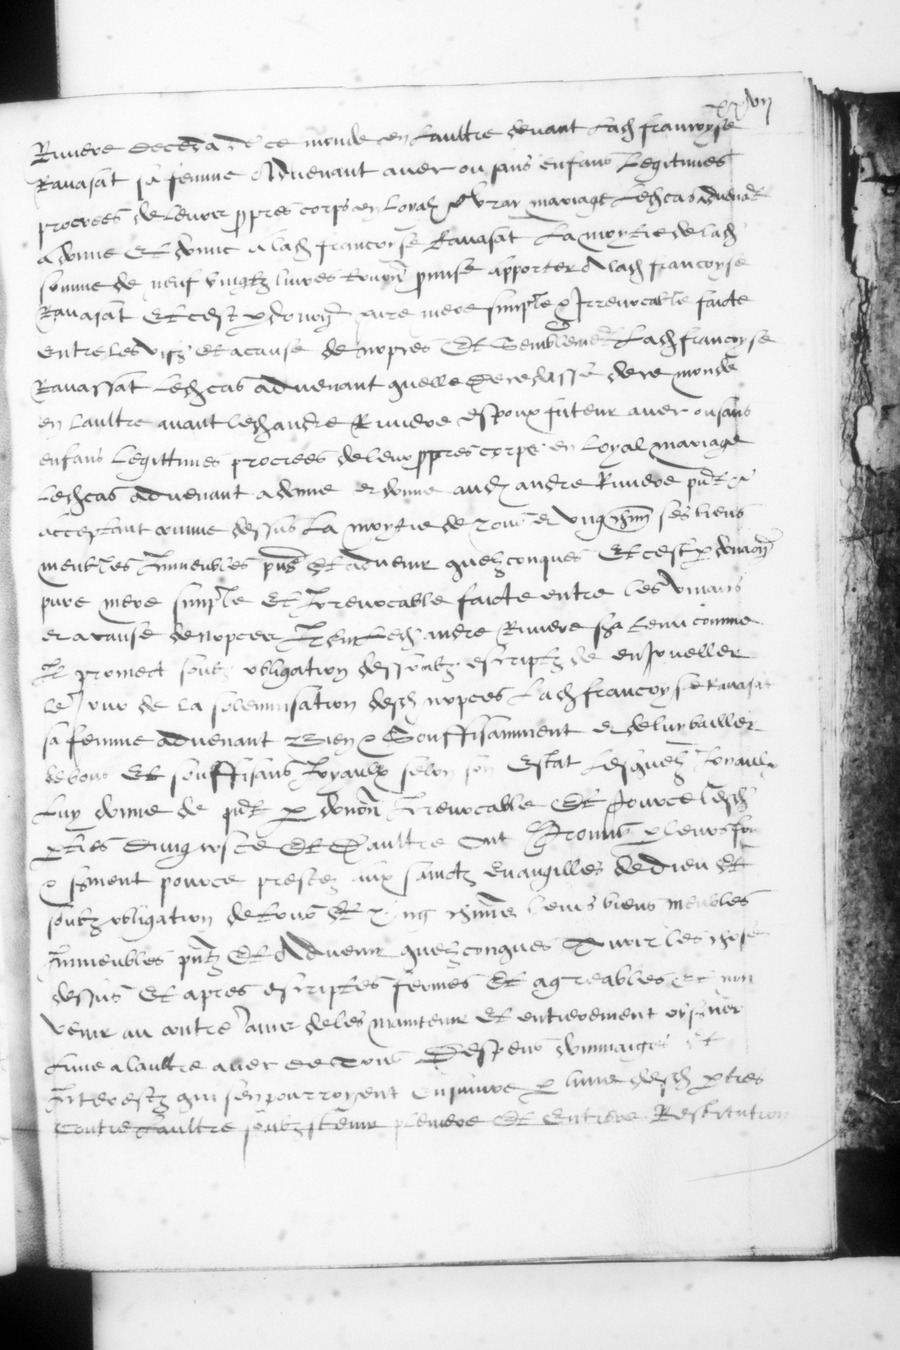 xxvii
Riviere deceda de ce monde en laultre devant lad francoyse
Ravasat sa femme Advenant avec ou sans enfans legitimes
procrees de leurs ppres corps en loyal & vray mariage led cas advenāt
a donne et donne a lad francoyse Ravasat la moytie de lad
somme de neuf vingtz livres tourn promise apporter A lad francoyse
Ravasat Et cest p donaōn pure mere simple & Irrevocable faicte
entre les vifz et a cause de nopces Et Semblemēt Lad francoyse
Ravassat led cas advenant quelle decedasse de ce monde
en laultre avant led andre Riviere espoux futeur avec ou sans
enfans legittimes procrees de leur ppres corps en loyal mariage
led cas advenant a donne et donne aud andre Riviere pnt &
acceptant comme dessus la moytie de tous et ungchūn ses biens
meubles Immeubles pns Et advenir quelzconques Et cest p donaōn
pure mere simple Et Irrevocable faicte entre les vivans
et a cause de nopces Item led andre Riviere sera tenu comme
Il promect soubz obligation dessoubz escriptz de enJoueller
le Jour de la solempnisation desd nopces Lad francoyse Ravasat
sa femme advenant Bien & Souffisamment et de luy bailler
de bons Et souffisans Joyaulx selon son Estat Lesquelz Joyaulx
luy donne de pnt p donaōn Irrevocable Et pource lesd
pties dung coste Et Daultre Ont promis p leurs foy
& serment pource prestez aux sainctz evangilles de Dieu et
soubz obligation de tous Et ung chūns leurs biens meubles
Immeubles pntz Et Advenir quelzconques Avoir les choses
dessus Et apres escriptes fermes Et agreables et non
venir au contre ains de les maintenir et entierement observer
Lune a laultre avec de tous Despens dommaiges et
Interestz qui sen pourroyent ensuivre p lune desd pties
contre laultre soubz stenir pleniere Et Entiere Restitution